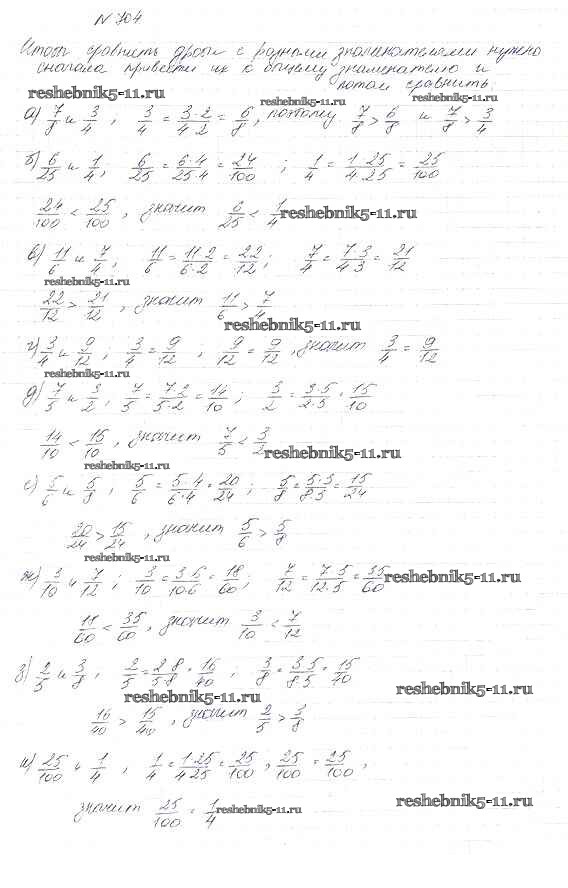 № 704
Чтобы сравнить дроби с разными знаменателями нужно
сначала привести их к общему знаменателю и
потом сравнить.
reshebnik5-11.ru
reshebnik5-11.ru
reshebnik5-11.ru
а) 7/8 и 3/4, 3/4 = 3·2/4·2 = 6/8, поэтому 7/8 > 6/8 и 7/8 > 3/4
б) 6/25 и 1/4, 6/25 = 6·4/25·4 = 24/100; 1/4 = 1·25/4·25 = 25/100
24/100 < 25/100, значит 6/25 < 1/4
reshebnik5-11.ru
в) 11/6 и 7/4, 11/6 = 11·2/6·2 = 22/12; 7/4 = 7·3/4·3 = 21/12
reshebnik5-11.ru
22/12 > 21/12, значит 11/6 > 7/4
reshebnik5-11.ru
г) 3/4 и 9/12; 3/4 = 9/12; 9/12 = 9/12, значит 3/4 = 9/12
reshebnik5-11.ru
д) 7/5 и 3/2, 7/5 = 7·2/5·2 = 14/10; 3/2 = 3·5/2·5 = 15/10
14/10 < 15/10, значит 7/5 < 3/2
reshebnik5-11.ru
reshebnik5-11.ru
е) 5/6 и 5/8, 5/6 = 5·4/6·4 = 20/24; 5/8 = 5·3/8·3 = 15/24
20/24 > 15/24, значит 5/6 > 5/8
reshebnik5-11.ru
ж) 3/10 и 7/12; 3/10 = 3·6/10·6 = 18/60; 7/12 = 7·5/12·5 = 35/60
reshebnik5-11.ru
11/60 < 35/60, значит 3/10 < 7/12
з) 2/5 и 3/8, 2/5 = 2·8/5·8 = 16/40; 3/8 = 3·5/8·5 = 15/40
reshebnik5-11.ru
reshebnik5-11.ru
16/40 > 15/40, значит 2/5 > 3/8
и) 25/100 и 1/4, 1/4 = 1·25/4·25 = 25/100, 25/100 = 25/100,
значит 25/100 = 1/4
reshebnik5-11.ru
reshebnik5-11.ru